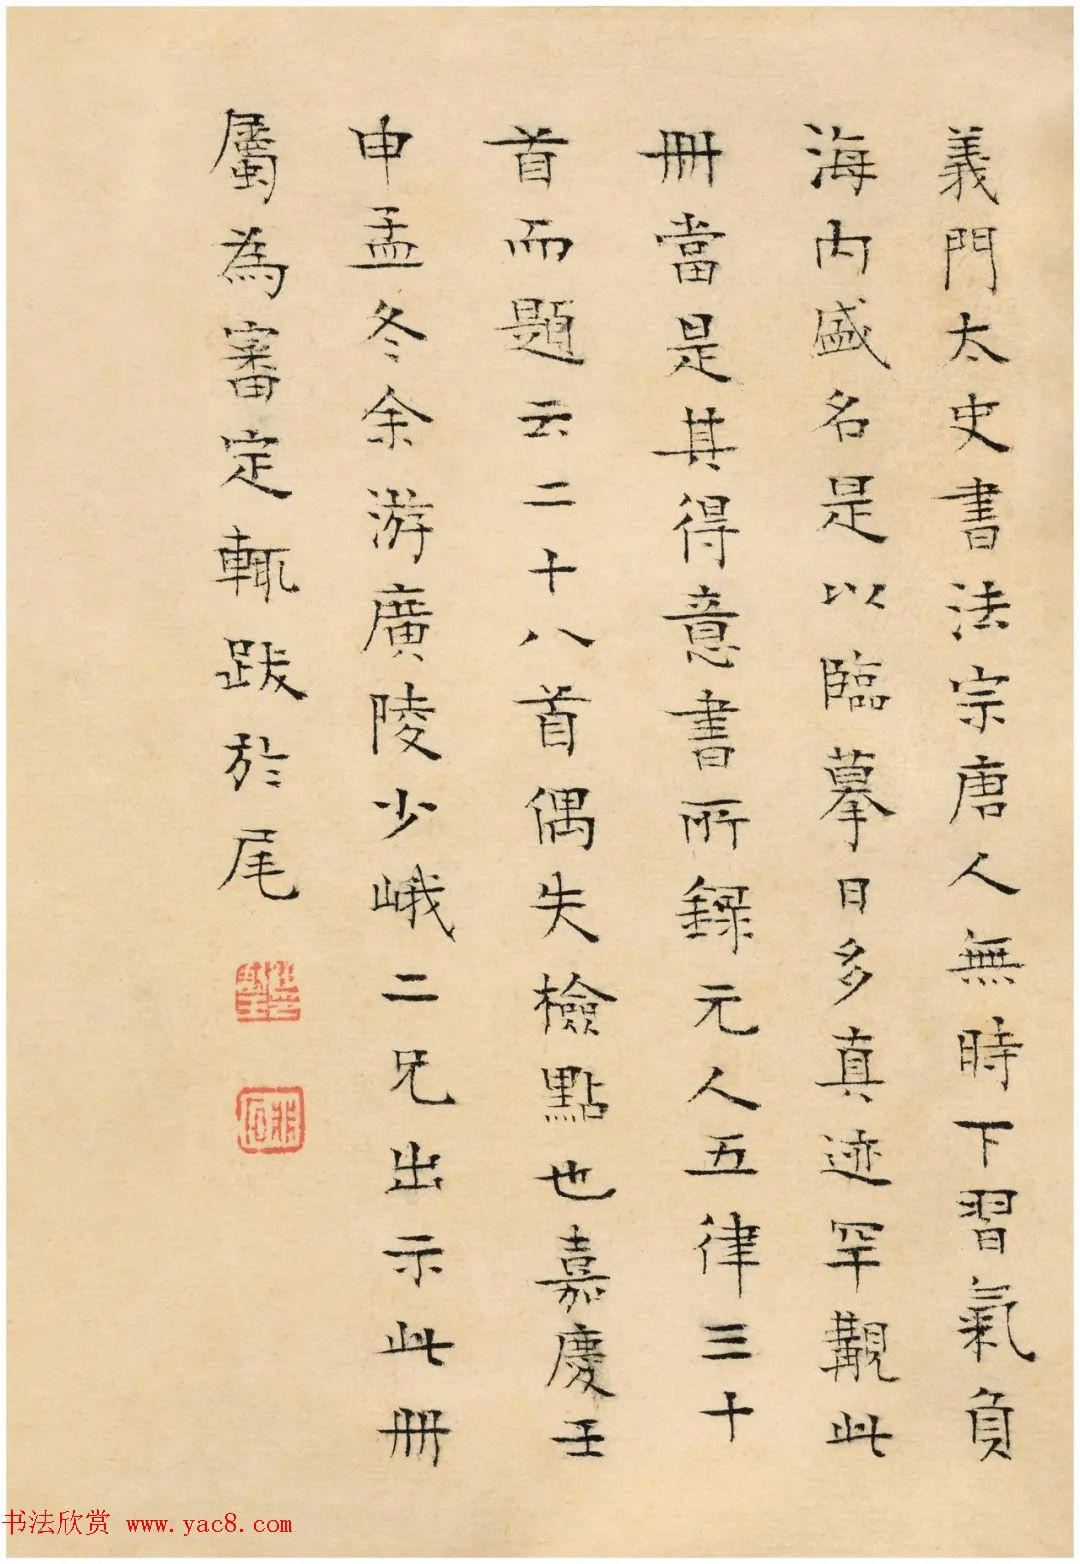 義門太史書法宗唐人無時下習氣負
海内盛名是以臨摹日多真迹罕覯此
冊當是其得意書所錄元人五律三十
首而題云二十八首偶失檢點也嘉慶壬
申孟冬余游廣陵少峨二兄出示此冊
屬為審定輒跋於尾
书法欣赏 www.yac8.com